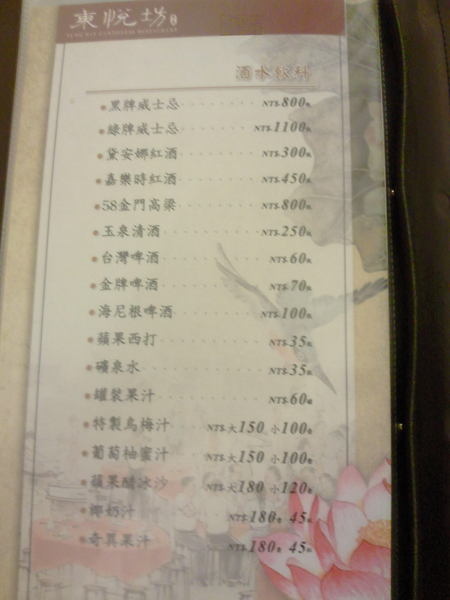 東悅坊
TUNG WAY CANTONESE RESTAURANT
酒水飲料
黑牌威士忌 NT$800瓶
綠牌威士忌 NT$1100瓶
黛安娜紅酒 NT$300瓶
嘉樂時紅酒 NT$450瓶
58金門高梁 NT$800瓶
玉泉清酒 NT$250瓶
台灣啤酒 NT$60瓶
金牌啤酒 NT$70瓶
海尼根啤酒 NT$100瓶
蘋果西打 NT$35瓶
礦泉水 NT$35瓶
罐裝果汁 NT$60罐
特製烏梅汁 NT$大150 小100壺
葡萄柚蜜汁 NT$大150 小100壺
蘋果醋冰沙 NT$大180 小120壺
椰奶汁 NT$180壺 45杯
奇異果汁 NT$180壺 45杯